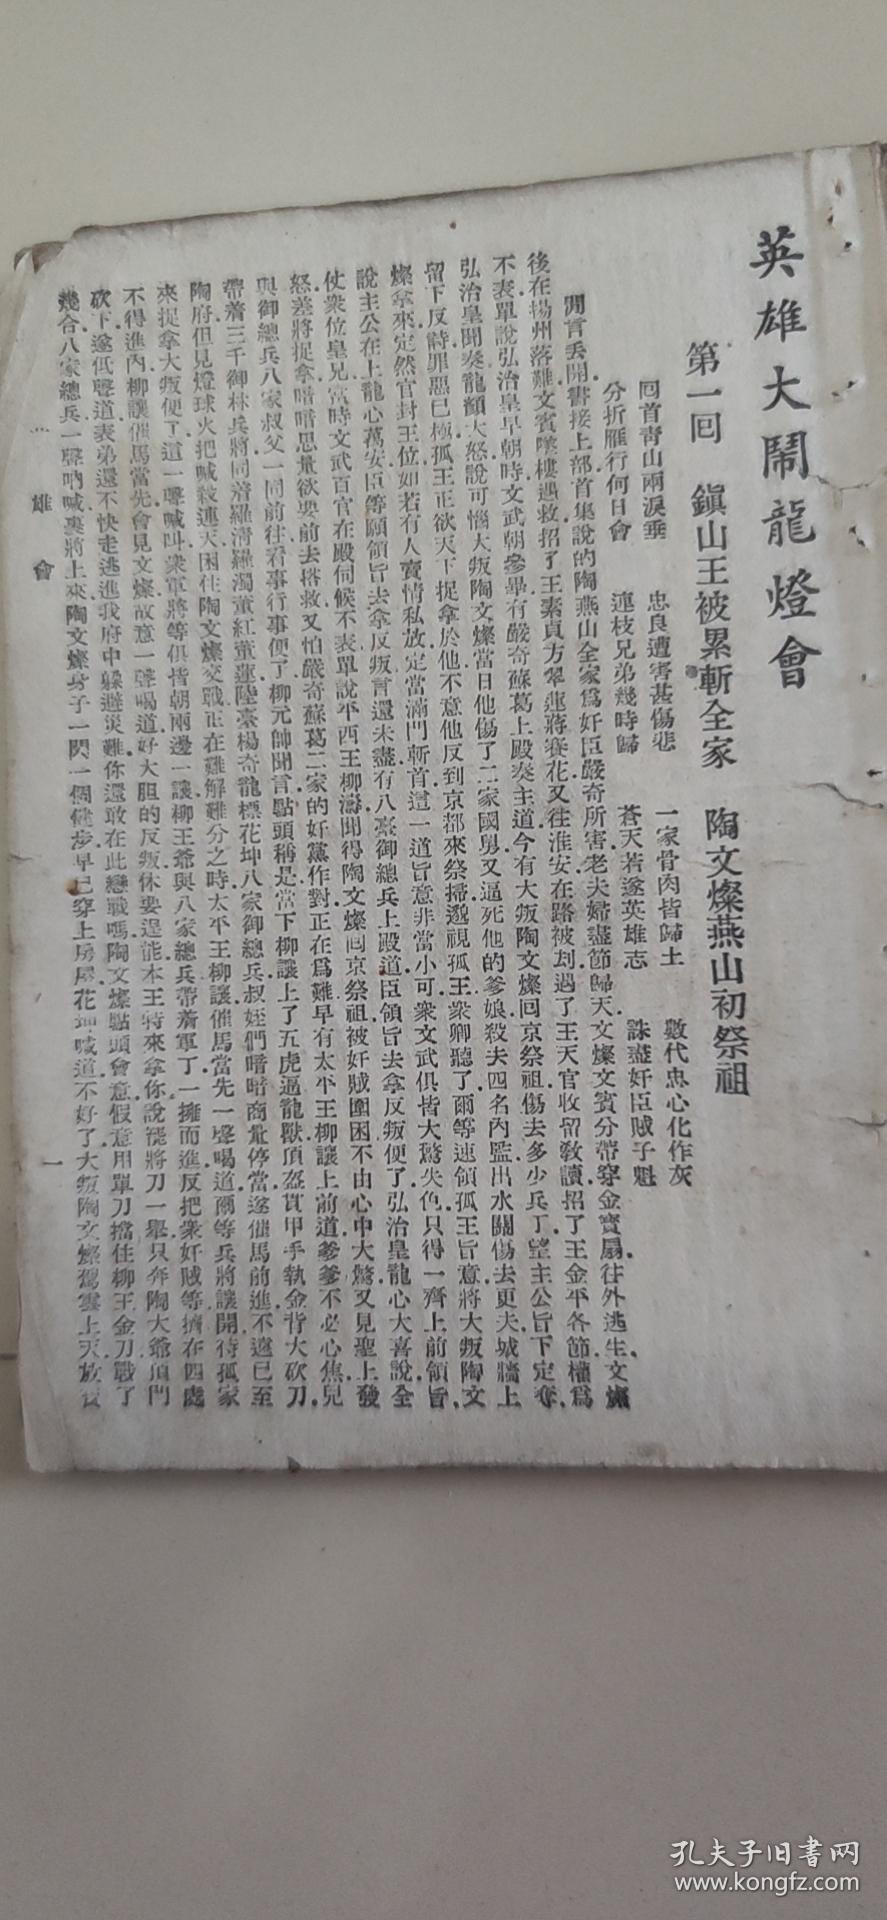 英雄大鬧龍燈會
第一回　鎭山王被累斬全家　陶文燦燕山初祭祖
回首靑山兩淚垂　忠良遭害甚傷悲　一家骨肉皆歸土　數代忠心化作灰
分折雁行何日會　連枝兄弟幾時歸　蒼天若遂英雄志　誅盡奸臣賊子魁
閒言丢開書接上部首集說的陶燕山全家爲奸臣嚴奇所害老夫婦盡節歸天文燦文賓分帶穿金寶扇往外逃生文燦
後在揚州落難文賓墜樓遇救招了王素貞方翠蓮蔣賽花又往淮安在路被刦遇了王天官收留敎讀招了王金平各節權爲
不表單說弘治皇早朝時文武朝參畢有嚴奇蘇葛上殿奏主道今有大叛陶文燦回京祭祖傷去多少兵丁望主公旨下定奪
弘治皇聞奏龍顏大怒說可惱大叛陶文燦當日他傷了二家國舅又逼死他的爹娘殺夫四名內監出水關傷去更夫城牆上
留下反詩罪惡已極孤王正欲天下捉拿於他不意他反到京都來祭掃邈視孤王衆卿聽了爾等速領孤王旨意將大叛陶文
燦拿來定然官封王位如若有人賣情私放定當滿門斬首這一道旨意非當小可衆文武俱皆大驚失色只得一齊上前領旨
說主公在上龍心萬安臣等願領旨去拿反叛言還未盡有八臺御總兵上殿道臣領旨去拿反叛便了弘治皇龍心大喜說全
仗衆位皇兄當時文武百官在殿伺候不表單說平西王柳濤聞得陶文燦回京祭祖被奸賊圍困不由心中大驚又見聖上發
怒差將捉拿暗暗思量欲要前去搭救又怕嚴奇蘇葛二家的奸黨作對正在爲難早有太平王柳讓上前道爹爹不必心焦兒
與御總兵八家叔父一同前往看事行事便了柳元帥聞言點頭稱是當下柳讓上了五虎逼龍獸頂盔貫甲手執金背大砍刀
帶着三千御林兵將同着羅清羅濁董紅董蓮陸臺楊奇龍標花坤八家御總兵叔姪們暗暗商量停當遂催馬前進不遠已至
陶府但見燈球火把喊殺連天困住陶文燦交戰正在難解難分之時太平王柳讓催馬當先一聲喝道爾等兵將讓開待孤家
來捉拿大叛便了這一聲喊叫衆軍將等俱皆朝兩邊一讓柳王爺與八家總兵帶着軍丁一擁而進反把衆奸賊等擠在四處
不得進內柳讓催馬當先會見文燦故意一聲喝道好大胆的反叛休要逞能本王特來拿你說罷將刀一舉只奔陶大爺頂門
砍下遂低聲道表弟還不快走逃進我府中躲避災難你還敢在此戀戰嗎陶文燦點頭會意假意用單刀擋住柳王金刀戰了
幾合八家總兵一聲吶喊裹將上來陶文燦身子一閃一個健步早已穿上房屋花坤喊道不好了大叛陶文燦駕雲上天放
雄會
一
孔夫子旧书网
www.kongfz.com